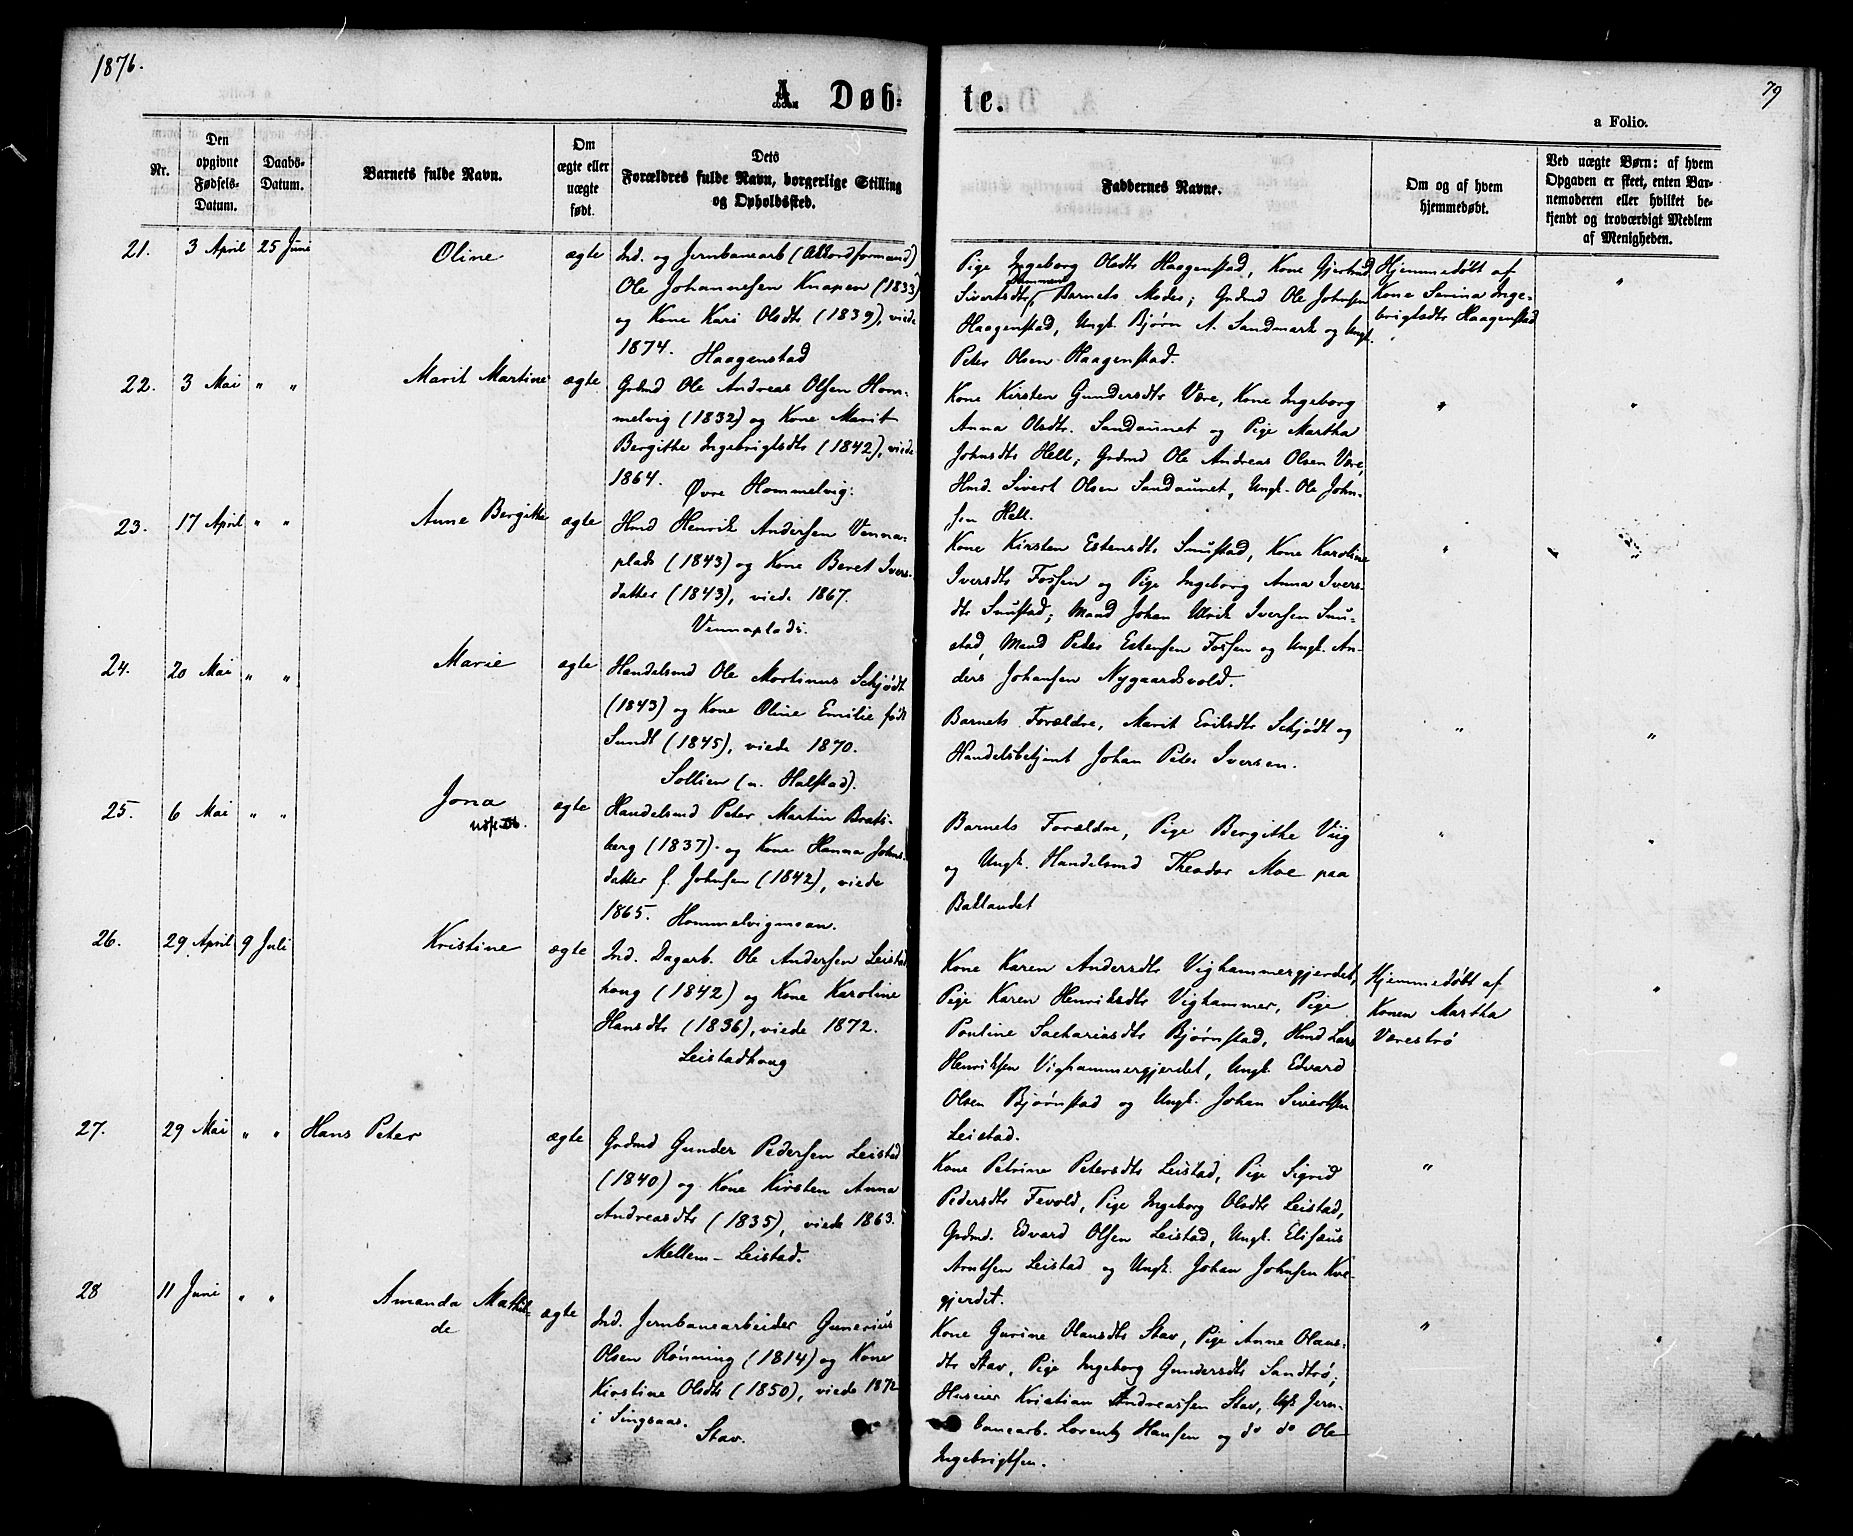 1876.
79
A. Døb-
te.
a Folio.
Nr.
Den opgivne Fødsels-Datum.
Daabs-Datum.
Barnets fulde Navn.
Om ægte eller uægte født.
Dets Forældres fulde Navn, borgerlige Stilling og Opholdssted.
Faddernes Navne.
Om og af hvem hjemmedøbt.
Ved uægte Børn: af hvem Opgaven er skeet, enten Barnemoderen eller hvilket bekjendt og troværdigt Medlem af Menigheden.
21. 3 April 25 Juni Oline ægte
Ind. og Jernbanearb (Akkordformand)
Ole Johannesen Knapen (1833)
og Kone Kari Olsdtr (1839), viede
1874. Haagenstad
Pige Ingeborg Olsdtr Haagenstad, Kone Gjertrud
Sivertsdtr Barnets Moder; Grdmd Ole Johnsen
Haagenstad, Ungk. Bjørn A. Sandmark og Ungk.
Peter Olsen Haagenstad.
Hjemmedøbt af
Kone Serina Inge-
brigtsdtr Haagenstad
"
22. 3 Mai " " Marit Martine ægte
Grdmd Ole Andreas Olsen Hom-
melvig (1832) og Kone Marit
Bergithe Ingebrigtsdtr (1842), viede
1864. Øvre Hommelvig.
Kone Kirsten Gundersdtr Være, Kone Ingeborg
Anna Olsdtr. Sandaunet og Pige Martha
Johnsdtr Hell; Grdmd Ole Andreas Olsen Være,
Hmd. Sivert Olsen Sandaunet, Ungk. Ole John-
sen Hell.
" "
23. 17 April " " Anne Bergitte ægte
Hmd Henrik Andersen Venna-
plads (1843) og Kone Beret Ivers-
datter (1843), viede 1867.
Vennaplads.
Kone Kirsten Estensdtr Snustad, Kone Karoline
Iversdtr Fossen og Pige Ingeborg Anna Ivers-
dtr Snustad; Mand Johan Ulrik Iversen Snu-
stad, Mand Peder Estensen Fossen og Ungk. An-
ders Johansen Nygaardsvold.
"
24. 20 Mai " " Marie ægte
Handelsmd Ole Martinus Schjødt
(1843) og Kone Oline Emilie født
Sundt (1845), viede 1870.
Sollien (u. Halstad).
Barnets Forældre, Marit Eriksdtr Schjødt og
Handelsbetjent Johan Peter Iversen.
" "
25. 6 Mai " " Jona ægte
Handelsmd Peter Martin Brats-
berg (1837) og Kone Hanna Johns-
datter f. Johnsen (1842), viede
1865. Hommelvigmoan.
Barnets Forældre, Pige Bergithe Viig
og Ungk. Handelsmd Theodor Moe paa
Ballandet
" "
26. 29 April 9 Juli Kristine ægte
Ind. Dagarb. Ole Andersen Leistad
haug (1842) og Kone Karoline
Hansdtr (1836), viede 1872.
Leistadhaug
Kone Karen Andersdtr Vighammergjerdet,
Pige Karen Henriksdtr Vighammer, Pige
Pauline Sachariasdtr Bjørnstad, Hmd Lars
Henriksen Vighammergjerdet, Ungk. Edvard
Olsen Bjørnstad og Ungk. Johan Sivertsen
Leistad.
Hjemmedøbt af
Konen Martha
Værestrø
"
27. 29 Mai " " Hans Peter ægte
Grdmd Gunder Pedersen Leistad
(1840) og Kone Kirsten Anna
Andreasdtr (1835), viede 1863.
Mellem-Leistad.
Kone Petrine Petersdtr Leistad, Pige Sigrid
Pedersdtr Fevold, Pige Ingeborg Olsdtr Leistad,
Grdmd. Edvard Olsen Leistad, Ungk. Elisæus
Arntsen Leistad og Ungk. Johan Johnsen Kve-
gjerdet.
"
28 11 Juni " " Amanda Mathil-
de ægte
Ind. Jernbanearbeider Gunerius
Olsen Rønning (1814) og Kone
Kirstine Olsdtr (1850), viede 1872
i Singsaas.
Stav.
Kone Gurine Olausdtr Stav, Pige Anne Olaus-
dtr Stav, Pige Ingeborg Gundersdtr Sandtrø;
Huseier Kristian Andreassen Stav, Ugk Jern-
banearb. Lorentz Hansen og do do Ole
Ingebrigtsen.
" "